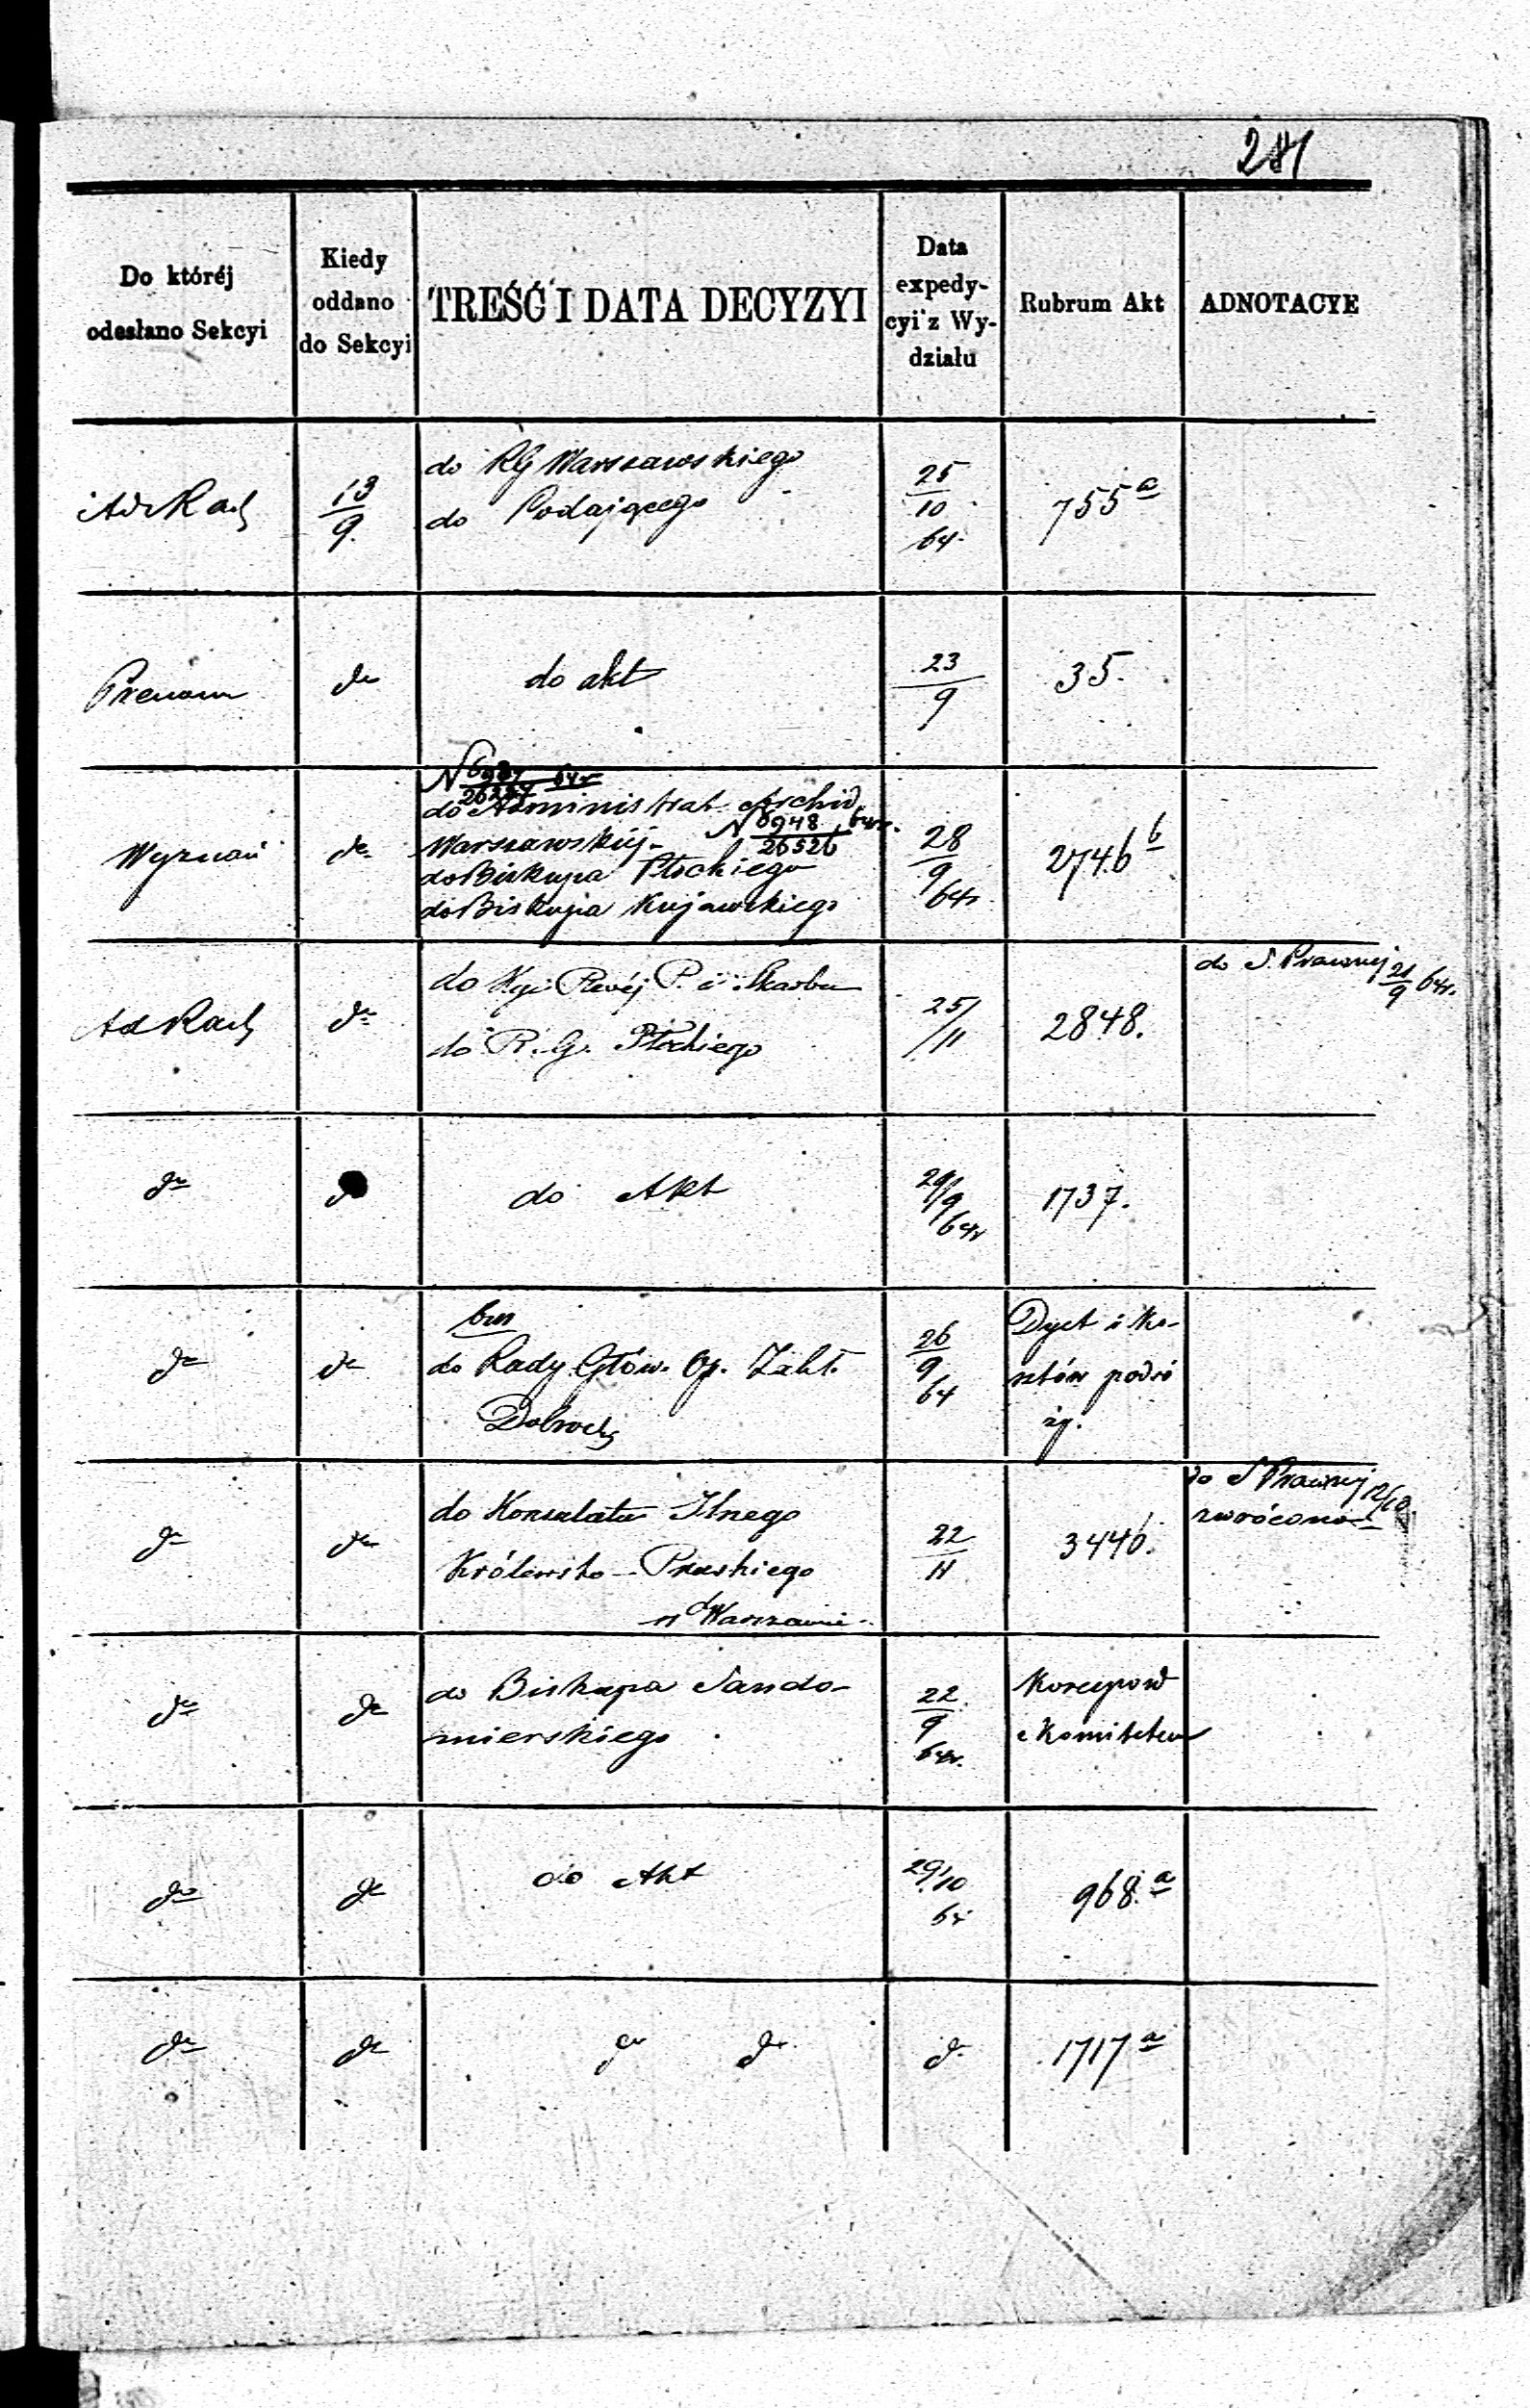 281
Do któréj
odesłano Sekcyi
Kiedy
oddano
do Sekcyi
TREŚĆ I DATA DECYZYI
Data
expedy-
cyi z Wy-
działu
Rubrum Akt
ADNOTACYE
Ad Rach
13
9.
do RG Warszawskiego
do Podającego
25
10
64.
755 a
do
do akt
23
9
35.
Wyznań
do
N 6987 64r
26257
do Administrat Archid
Warszawskiéj - N 6948 64r.
26526
do Biskupa Płockiego
do Biskupa Kujawskiego
28
9
64r
2746 b
Ad Rach
do
do Kyi Rwéj P. i Skarbu
do R. G. Płockiego
25/
/11
2848.
do S. Prawnej 21 64r.
9
do
do Akt
29/
/9
/64r
1737.
do
do
do Rady Głów. Op. Zakł.
Dobrocz
26
9
64
Dyet i Ko-
sztów podró
ży.
do
do
do Konsulatu Jlnego
Królewsko - Pruskiego
w Warszawie
22
11
3446.
do S Prawnej 12/10
zwrócono
do
do
do Biskupa Sando-
mierskiego
22
9
64r.
Korespond
z Komitetem
do
do
do Akt
29/10
64
968. a
do
do
do do
do
1717 a